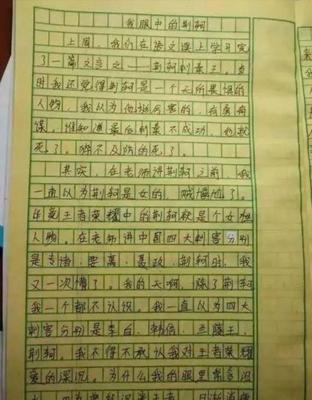 我眼中的荆轲
上周，我们在语文课上学习完
了一篇文言文——荆轲刺秦王。当
时我还觉得荆轲是一个无所畏惧的
人物，我以为他挺厉害的，有勇有
谋，谁知道最后刺秦不成功，
死了。猝不及防的死了。
其实，在老师讲荆轲之前，我
一直以为荆轲是女的，
王者荣耀中的荆轲就是个女
人物。在老师讲中国四大刺客分别
是专诸、要离、聂政、荆轲时，我
又一次懵了。我的天啊，除了荆轲
我一个都不认识。我一直以为四大
刺客分别是李白、韩信、兰陵王、
荆轲。我不得不承认我对王者荣耀
爱的深沉。为什么我的眼里常含泪